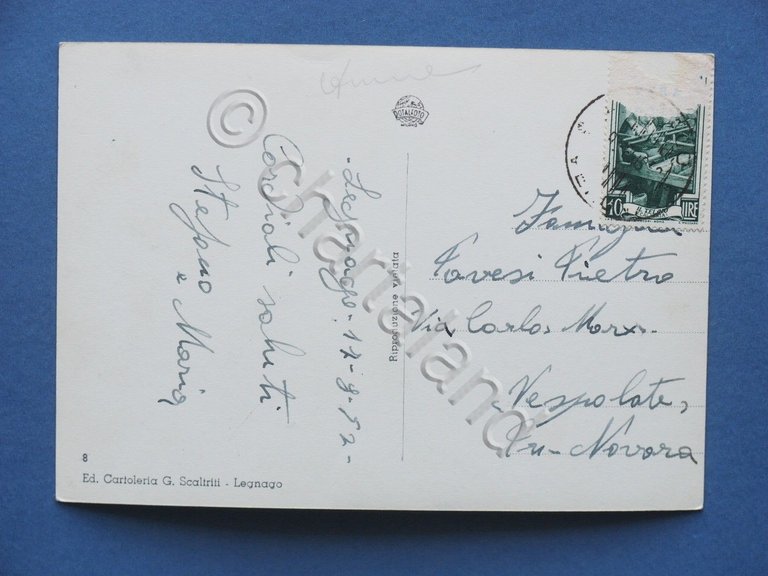 - Legnago - 17-8-52 -
Cordiali saluti
Stefano
e Maria
Riproduzione vietata
8
Ed. Cartoleria G. Scaltriti - Legnago
TOTALFOTO
10 LIRE
Famiglia
Pavesi Pietro
Via Carlo Marx.
Vespolate,
Pr- Novara
© Chartaland